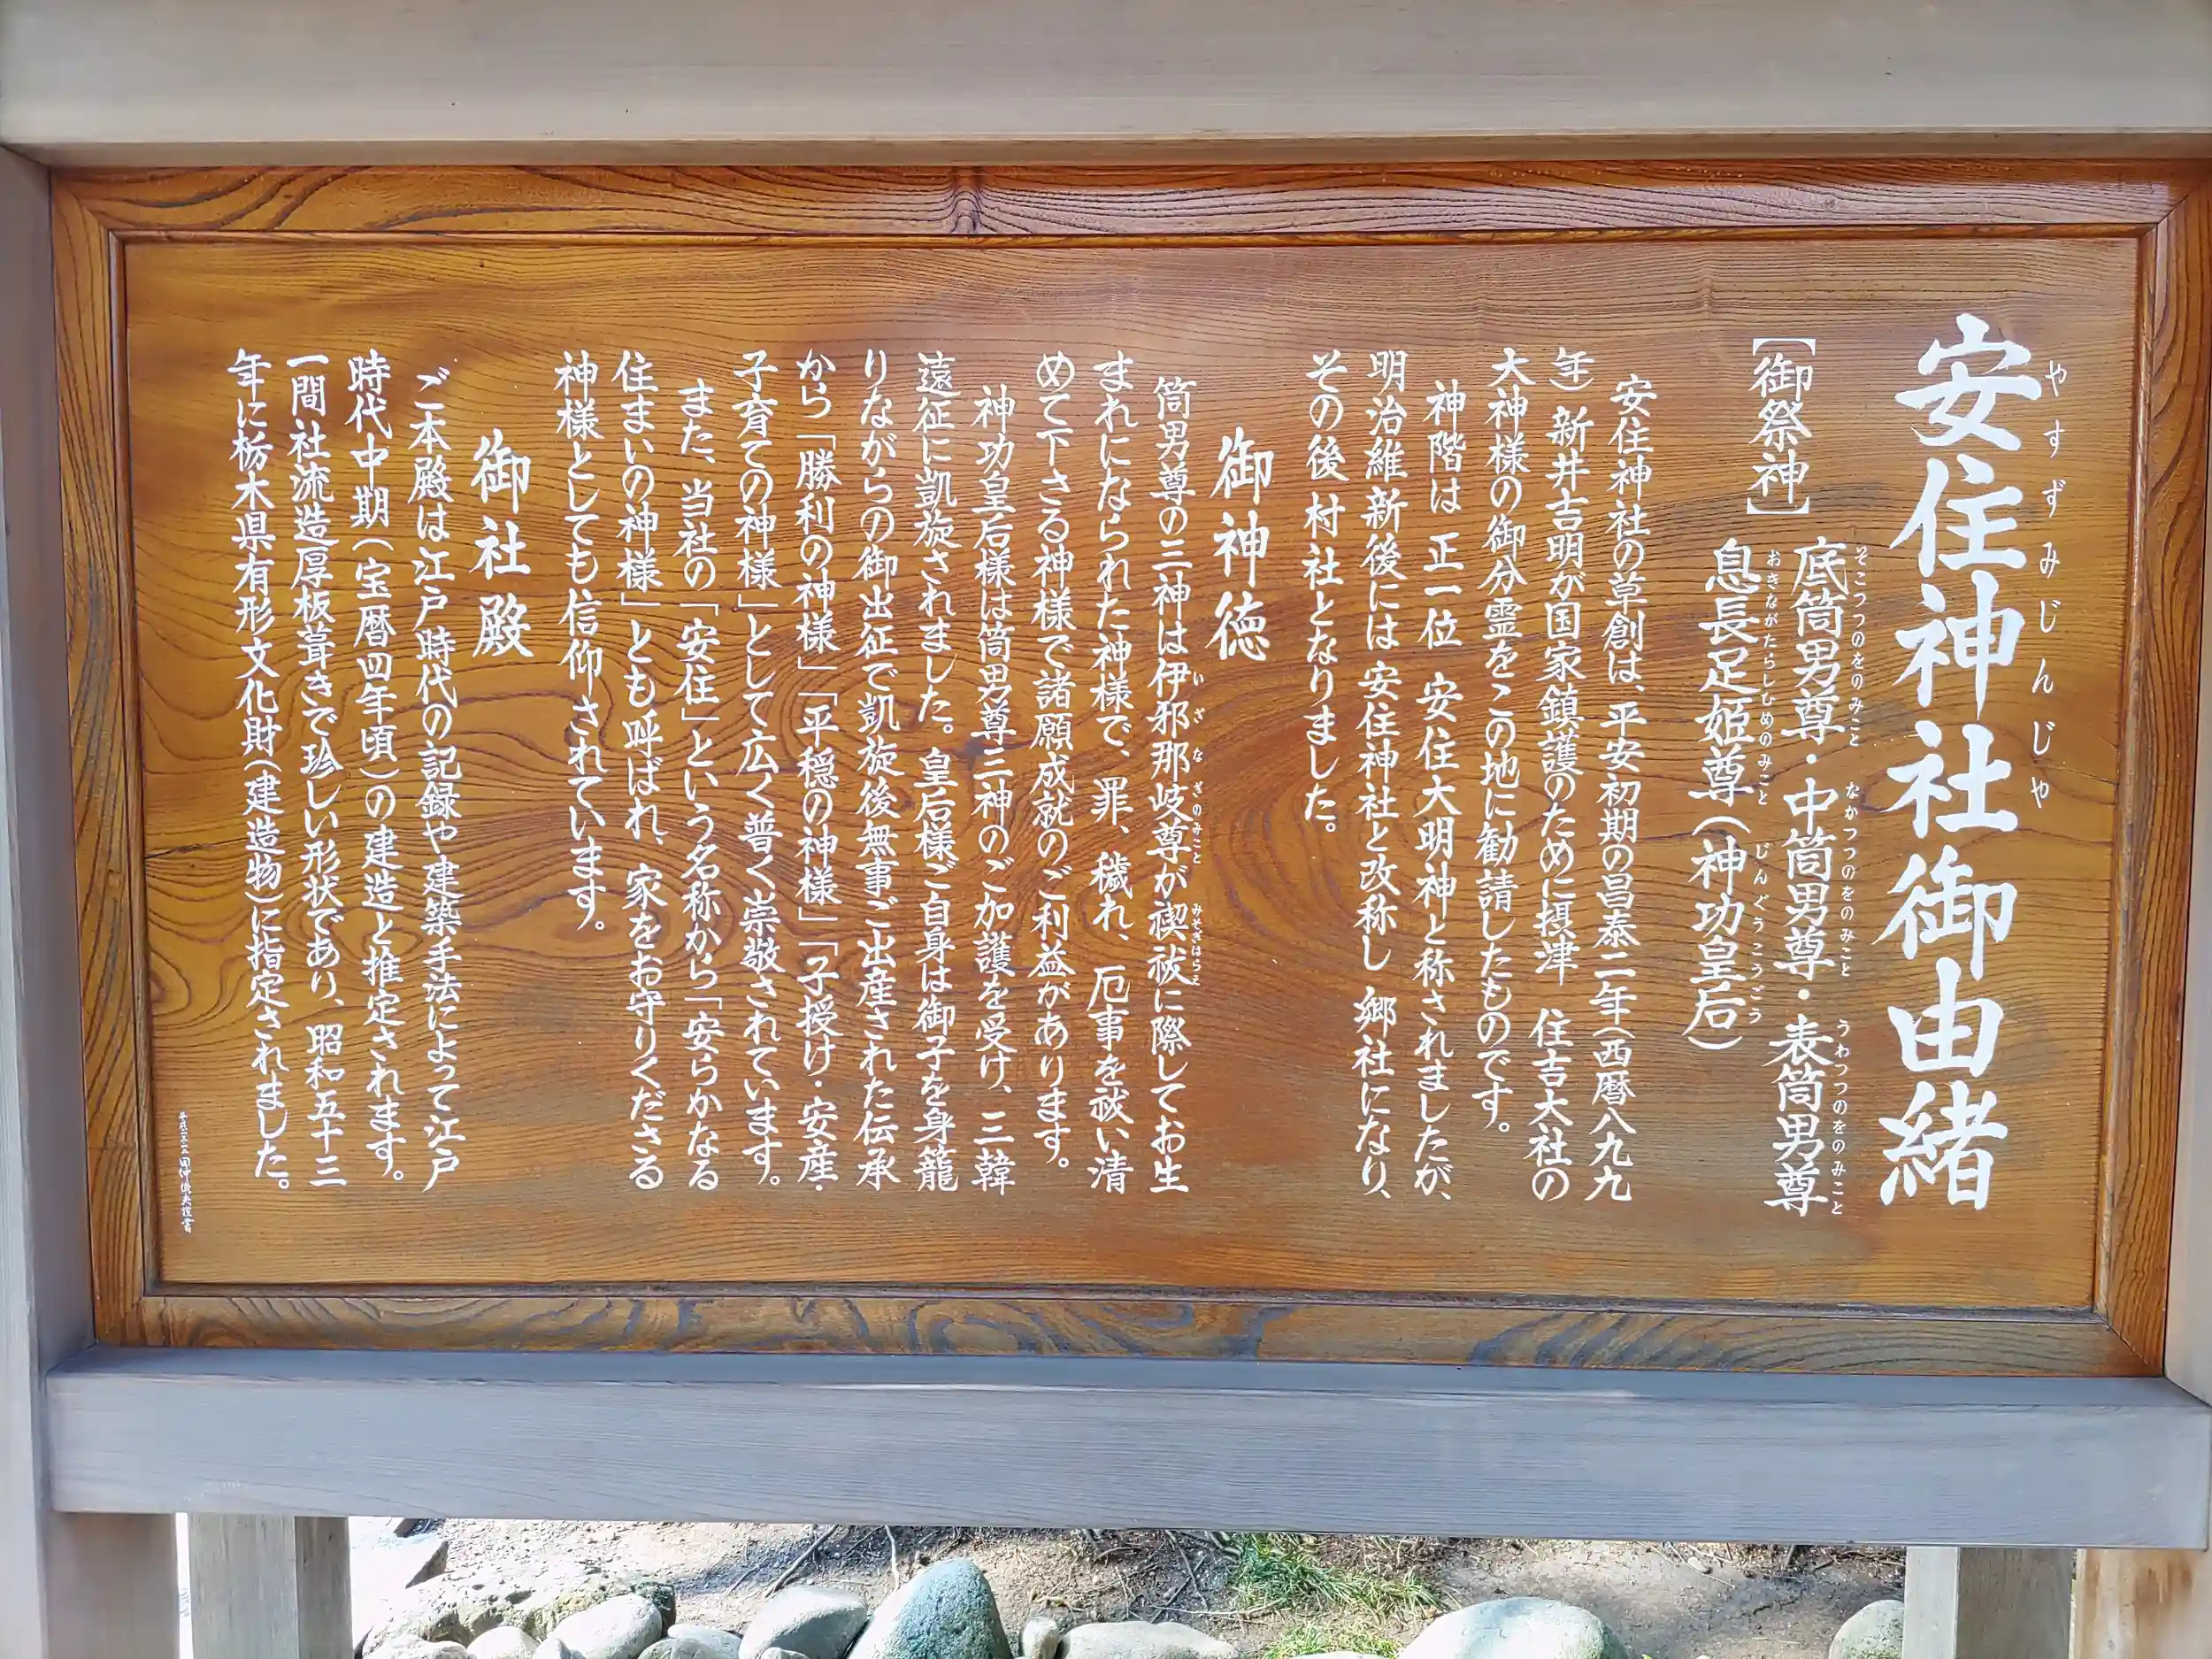 安住神社御由緒
やすずみじんじゃ
【御祭神】
底筒男尊・中筒男尊・表筒男尊
そこつつのをのみこと なかつつのをのみこと うわつつのをのみこと
息長足姫尊（神功皇后）
おきながたらしひめのみこと じんぐうこうごう
安住神社の草創は、平安初期の昌泰二年（西暦八九九
年）新井吉明が国家鎮護のために摂津 住吉大社の
大神様の御分霊をこの地に勧請したものです。
神階は 正一位 安住大明神と称されましたが、
明治維新後には 安住神社と改称し 郷社になり、
その後 村社となりました。
御神徳
筒男尊の三神は伊邪那岐尊が禊祓に際してお生
いざなぎのみこと みそぎはらえ
まれになられた神様で、罪、穢れ、厄事を祓い清
めて下さる神様で諸願成就のご利益があります。
神功皇后様は筒男尊三神のご加護を受け、三韓
遠征に凱旋されました。皇后様ご自身は御子を身籠
りながらの御出征で凱旋後無事ご出産された伝承
から「勝利の神様」「平穏の神様」「子授け・安産・
子育ての神様」として広く普く崇敬されています。
また、当社の「安住」という名称から「安らかなる
住まいの神様」とも呼ばれ、家をお守りくださる
神様としても信仰されています。
御社殿
ご本殿は江戸時代の記録や建築手法によって江戸
時代中期（宝暦四年頃）の建造と推定されます。
一間社流造厚板葺きで珍しい形状であり、昭和五十三
年に栃木県有形文化財（建造物）に指定されました。